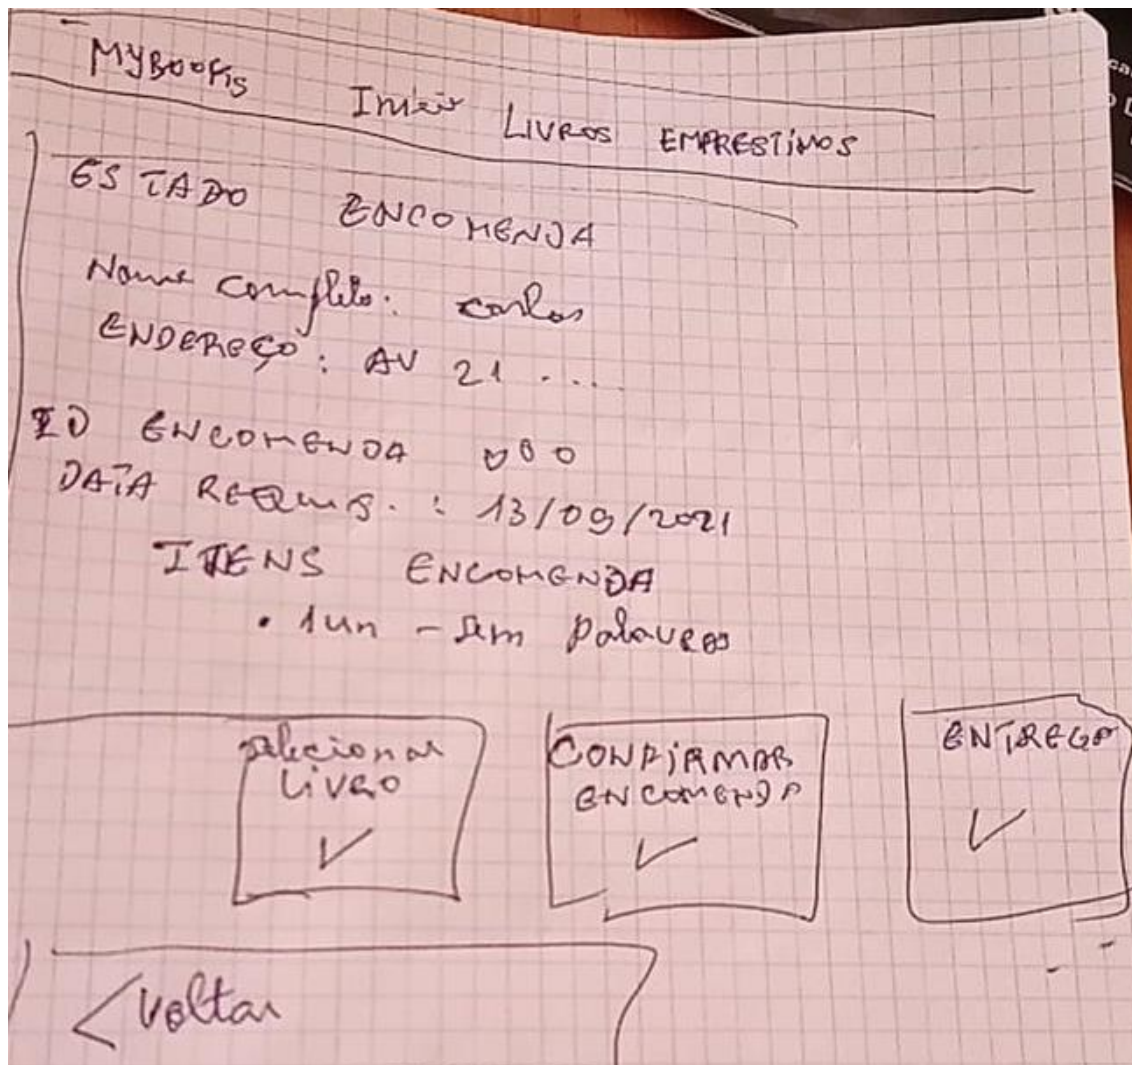 MYBOOKS Iniciar LIVROS EMPRESTIMOS
ESTADO ENCOMENDA
Nome completo: carlos
ENDEREÇO: AV 21 ....
ID ENCOMENDA 000
DATA REQUIS. : 13/09/2021
ITENS ENCOMENDA
• 1un - Sem Palavras
Selecionar
Livro
✓
CONFIRMAR
ENCOMENDA
✓
ENTREGA
✓
< Voltar